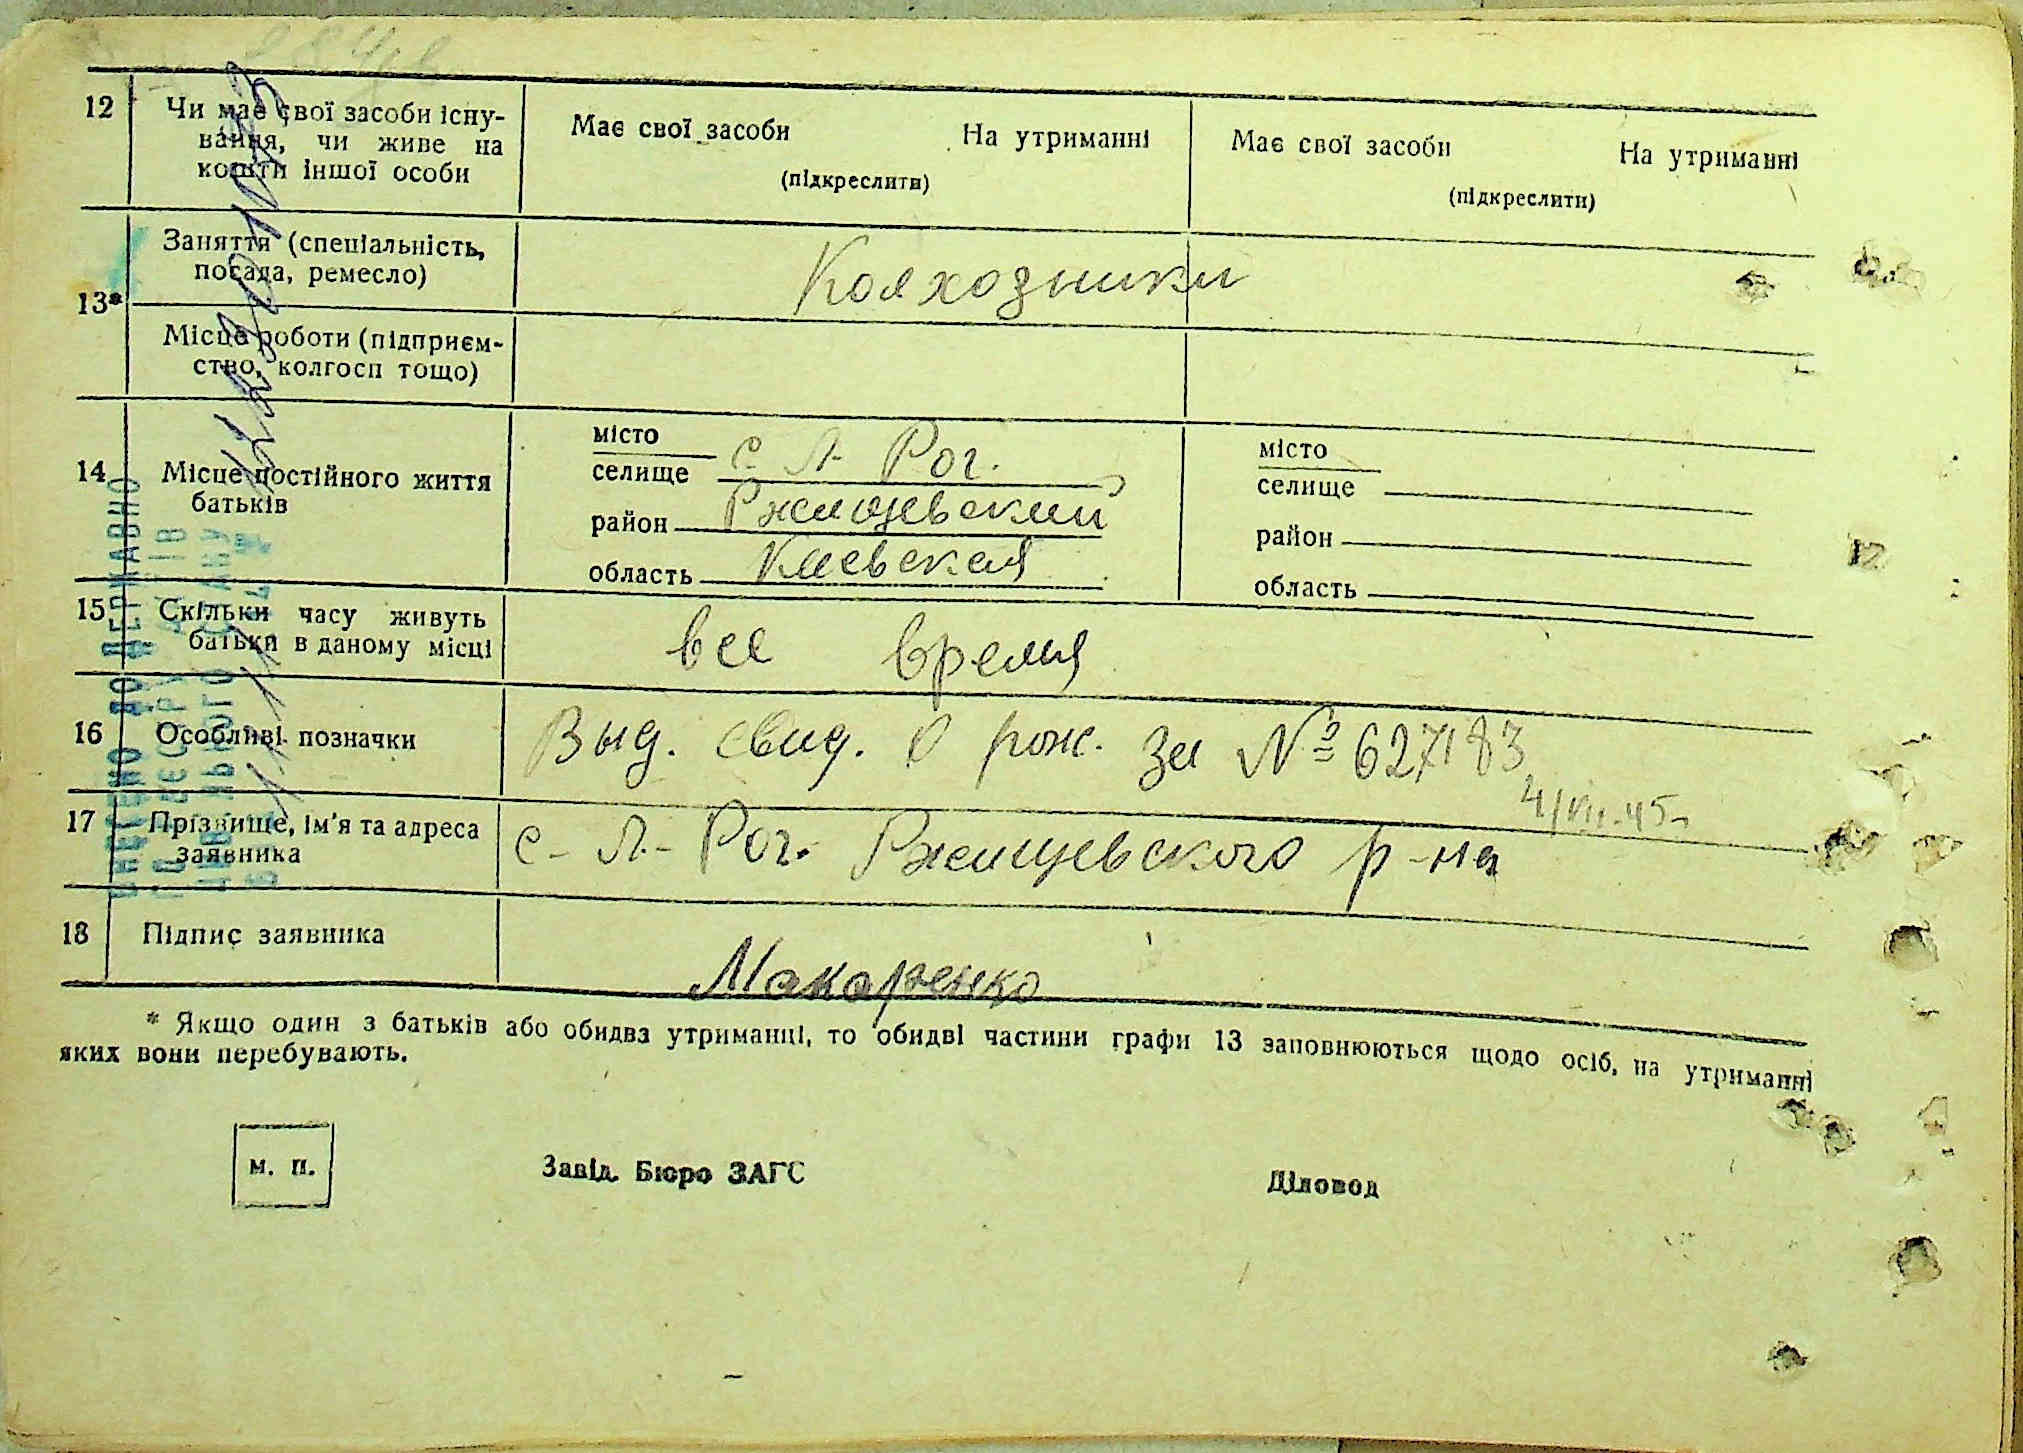 12
Чи має свої засоби існу-
вання, чи живе на
кошти іншої особи
Має свої засоби На утриманні
(підкреслити)
Має свої засоби На утриманні
(підкреслити)
13*
Заняття (спеціальність,
посада, ремесло)
Колхозники
Місце роботи (підприєм-
ство, колгосп тощо)
14
Місце постійного життя
батьків
місто
селище с. Л. Рог.
район Ржищевский
область Киевская
місто
селище
район
область
15
Скільки часу живуть
батьки в даному місці
все время
16
Особливі позначки
Выд. свид. о рож. за № 627183
4/VII-45г
17
Прізвище, ім'я та адреса
заявника
с-Л.-Рог. Ржищевского р-на
18
Підпис заявника
Макаренко
* Якщо один з батьків або обидва утриманці, то обидві частини графи 13 заповнюються щодо осіб, на утриманні
яких вони перебувають.
м. п.
Завід. Бюро ЗАГС
Діловод
ВНЕСЕНО ДО ДЕРЖАВНО